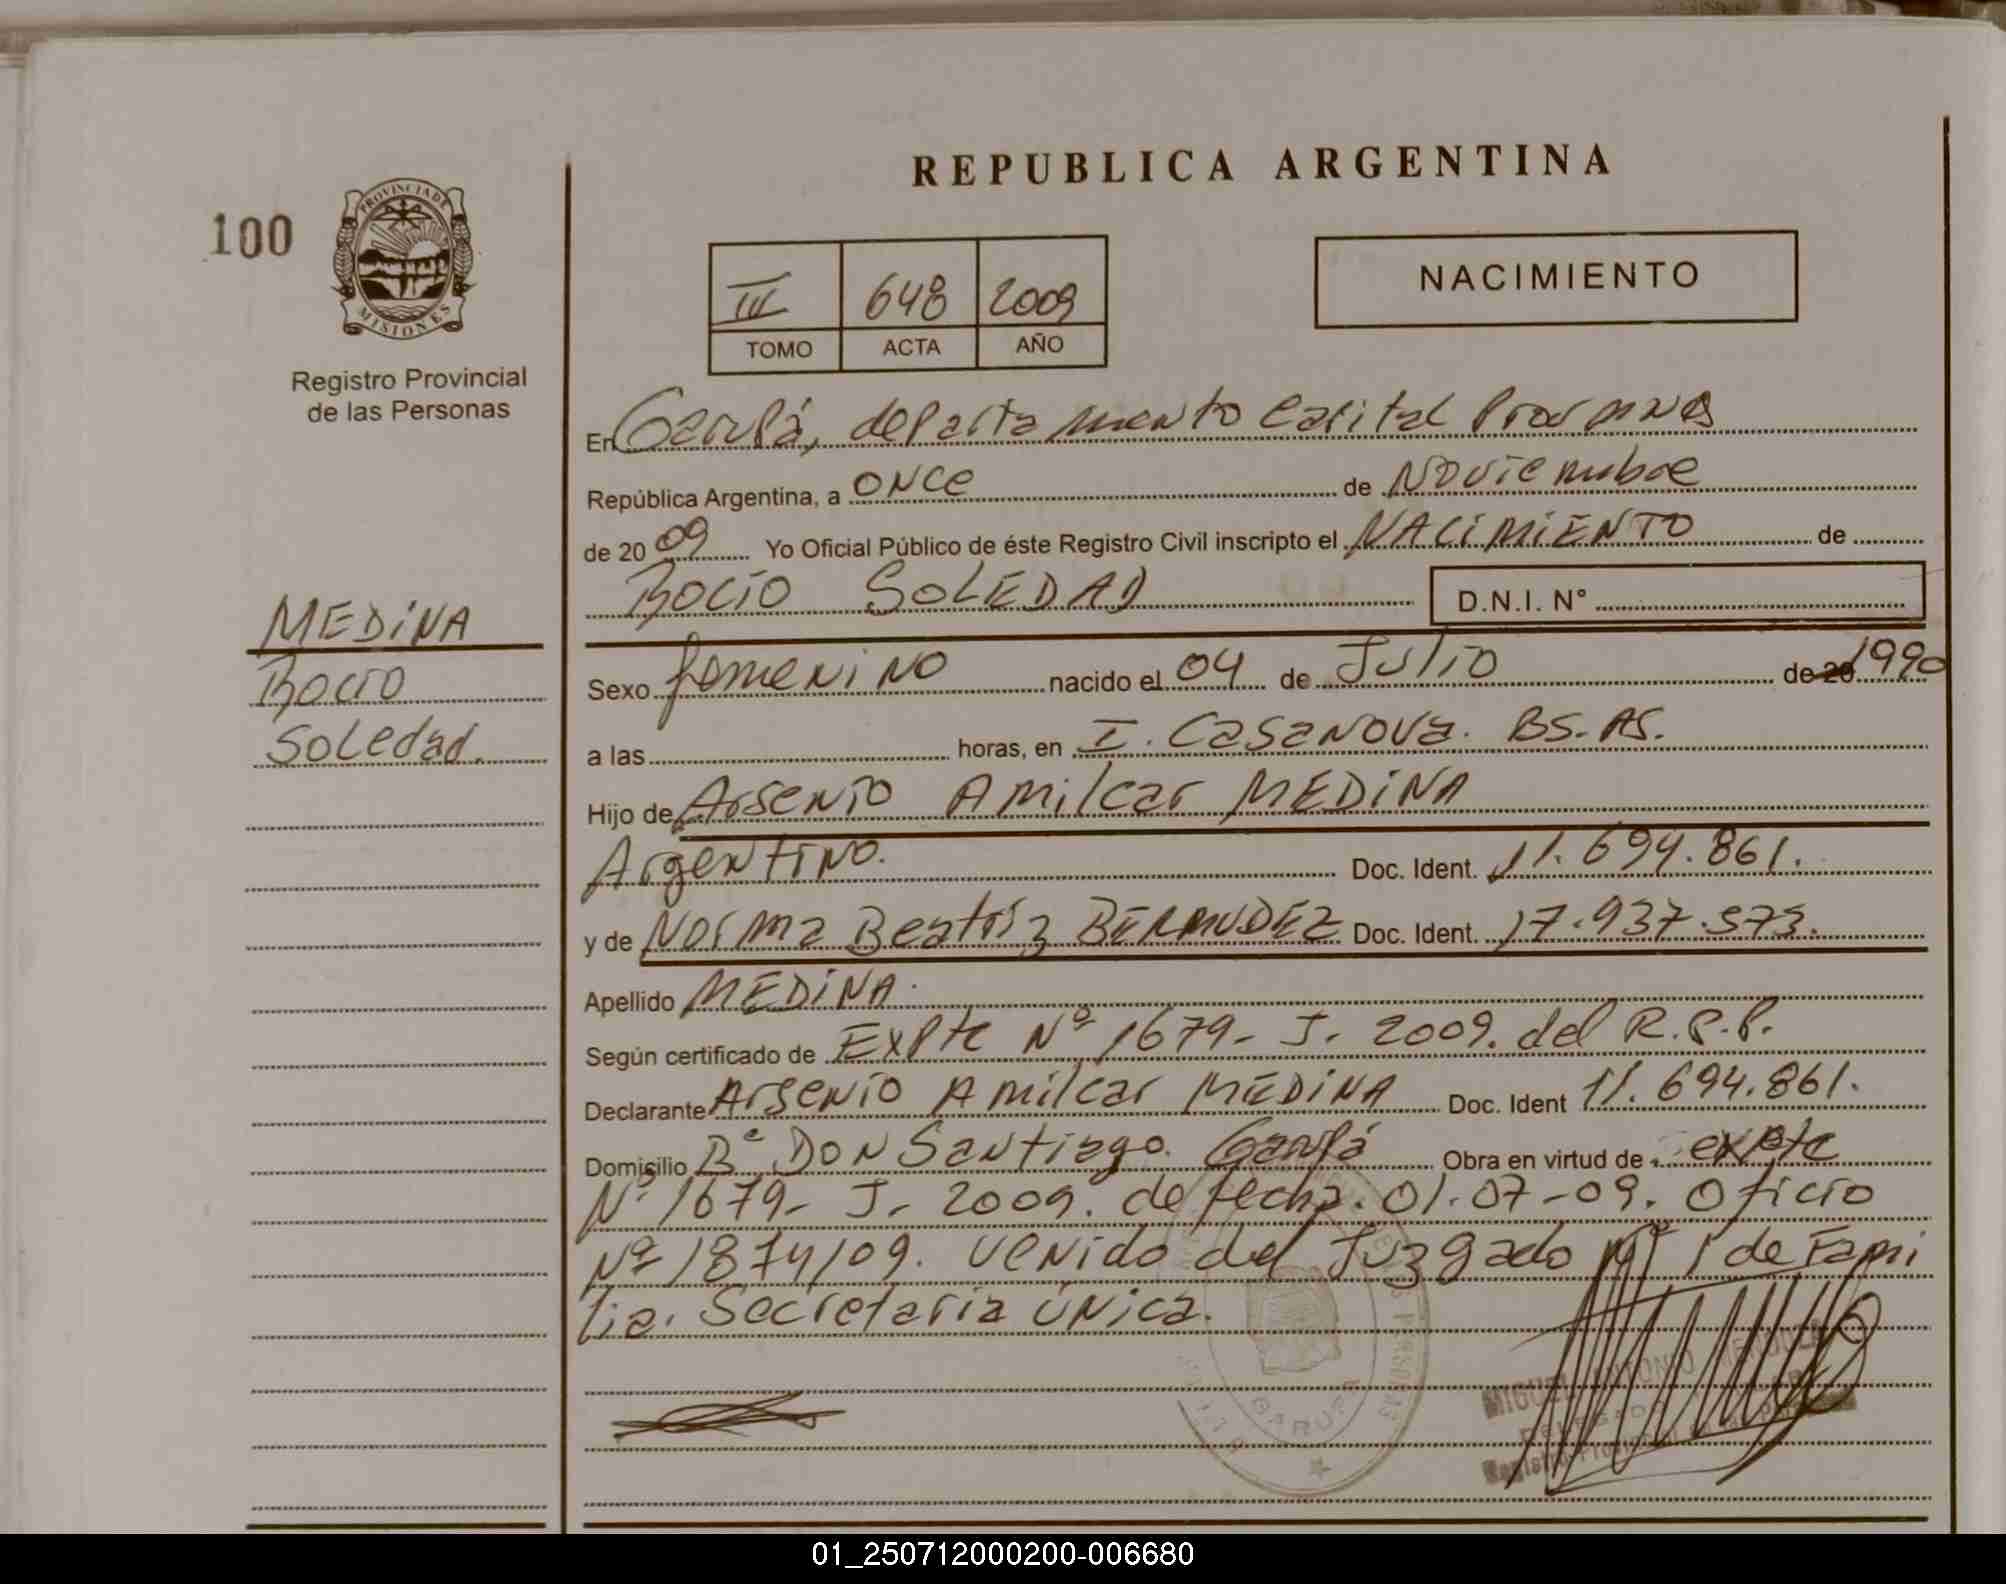 REPUBLICA ARGENTINA
100
PROVINCIA DE
MISIONES
Registro Provincial
de las Personas
III 648 2009
TOMO ACTA AÑO
NACIMIENTO
En Garupá, departamento Capital Prov. Mnes
República Argentina, a once de Noviembre
de 2009 Yo Oficial Público de éste Registro Civil inscripto el NACIMIENTO de
ROCÍO SOLEDAD D.N.I. N°
MEDINA
Rocío
Soledad.
Sexo femenino nacido el 04 de Julio de 20 1990
a las horas, en I. Casanova. BS. AS.
Hijo de Arsenio Amilcar MEDINA
Argentino. Doc. Ident. 11.694.861.
y de Norma Beatriz BERMUDEZ Doc. Ident. 17.937.573.
Apellido MEDINA.
Según certificado de Expte Nº 1679- J- 2009. del R.P.P.
Declarante Arsenio Amilcar MEDINA Doc. Ident 11.694.861.
Domicilio Bº Don Santiago. Garupá Obra en virtud de expte
Nº 1679- J- 2009. de fecha. 01-07-09. Oficio
Nº 1874/09. venido del Juzgado Nº 1 de Fami
lia. Secretaria Única.
GARUPA
MIGUEL ANTONIO
DELEGADO
Registro Provincial de las
01_250712000200-006680